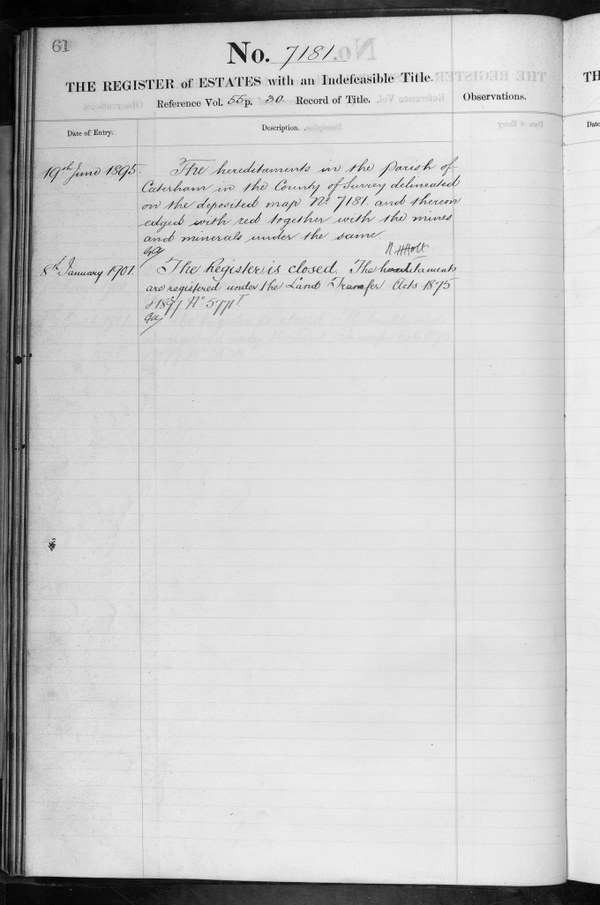 61
No. 7181.
THE REGISTER of ESTATES with an Indefeasible Title.
Reference Vol. 55 p. 30 Record of Title.
Observations.
Date of Entry.
Description.
19th June 1895
The hereditaments in the Parish of
Caterham in the County of Surrey delineated
on the deposited map No. 7181 and thereon
edged with red together with the mines
and minerals under the same.
8th January 1901.
The Register is closed. The hereditaments
are registered under the Land Transfer Acts 1875
TH
Date